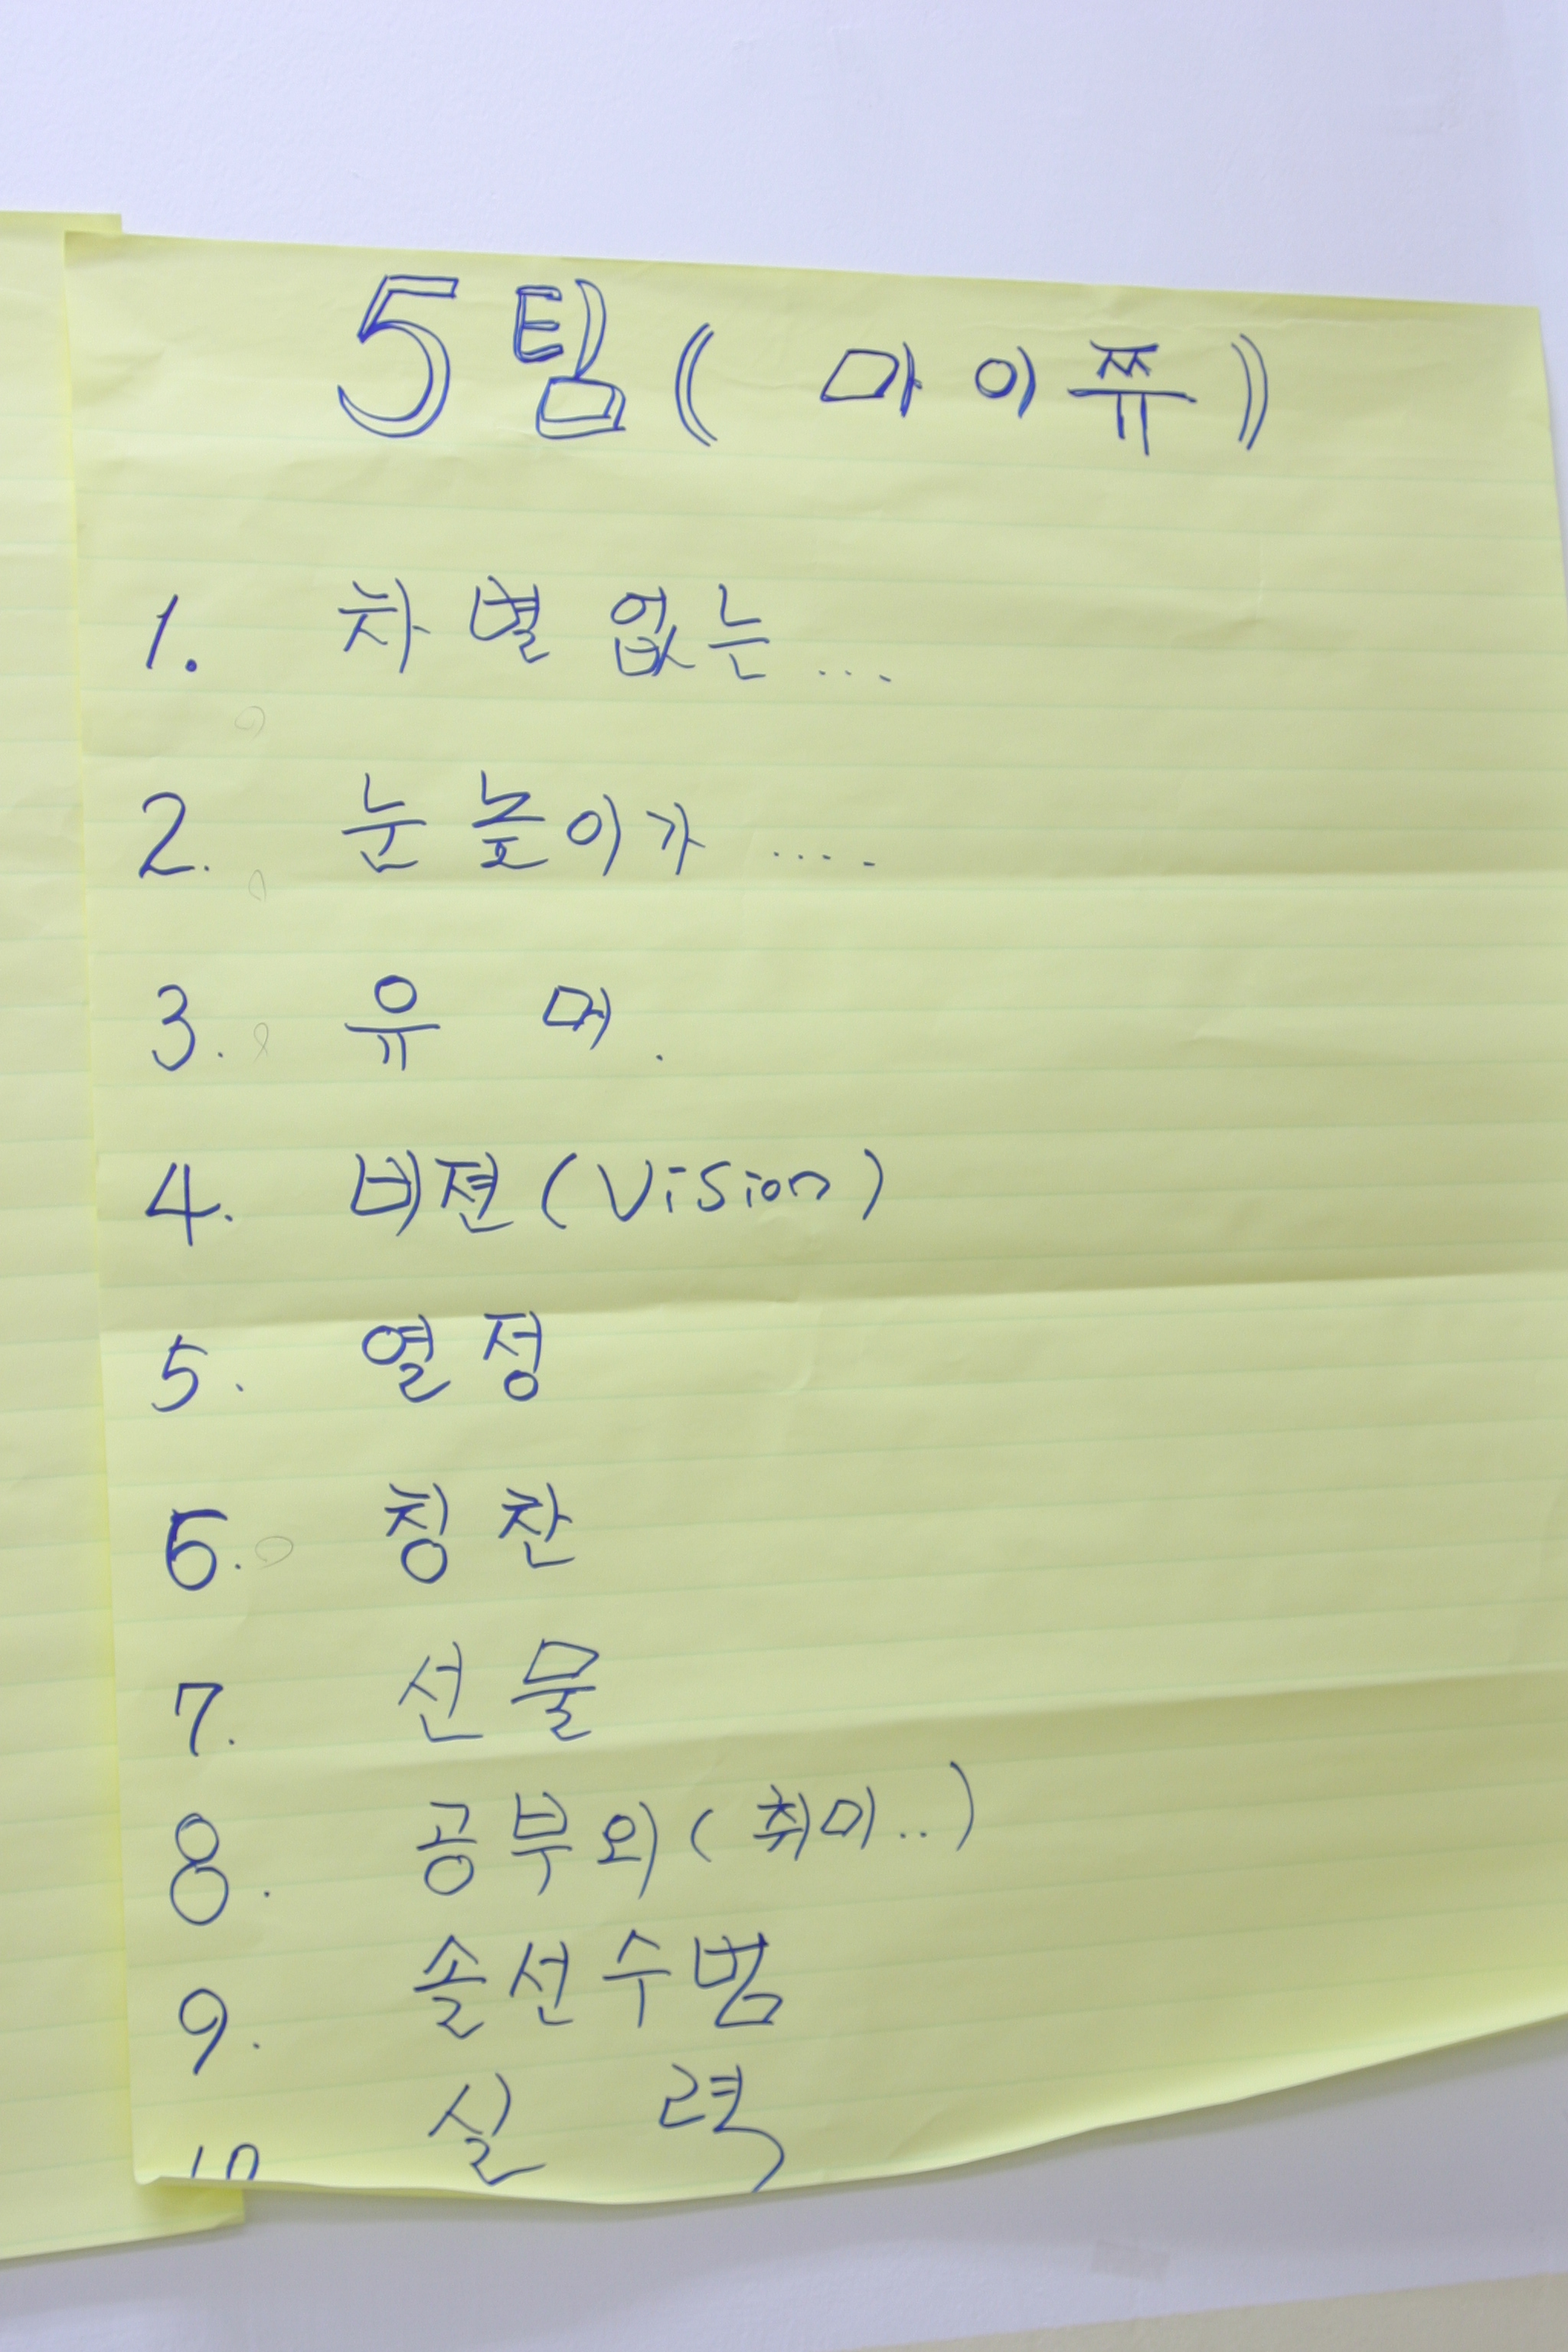 5팀 ( 마이쮸 )
1. 차별없는...
2. 눈높이가 ....
3. 유 머.
4. 비젼(Vision)
5. 열정
6. 칭찬
7. 선물
8. 공부외( 취미..)
9. 솔선수범
10 실 력